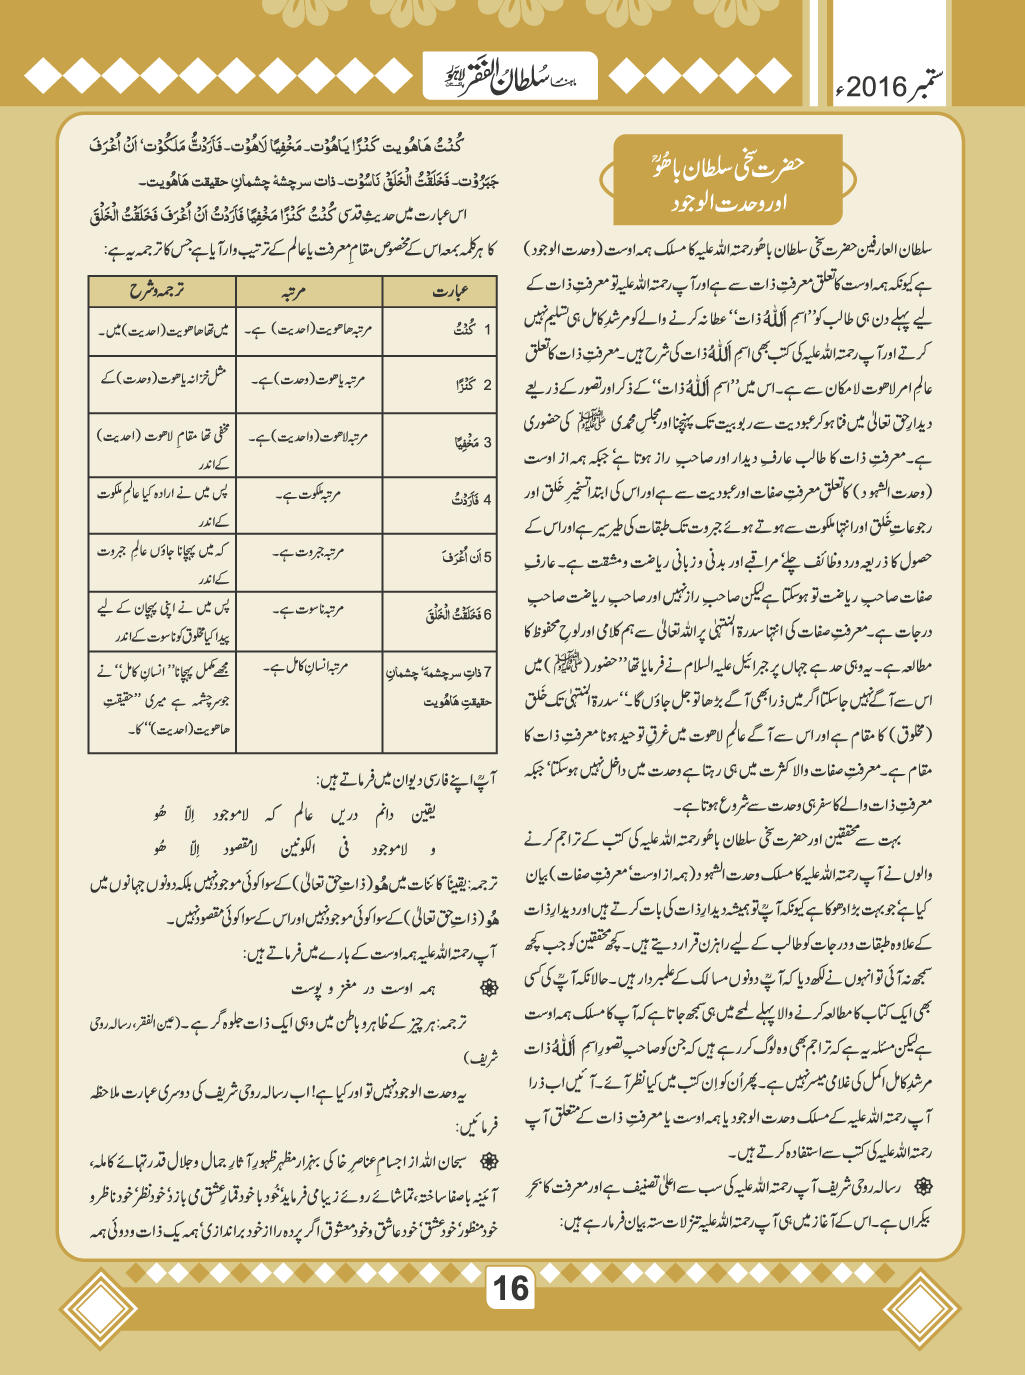 ستمبر 2016ء
ماہنامہ سلطان الفقر لاہور
حضرت سخی سلطان باھُوؒ
اور وحدت الوجود
سلطان العارفین حضرت سخی سلطان باھُو رحمتہ اللہ علیہ کا مسلک ہمہ اوست (وحدت الوجود)
ہے کیونکہ ہمہ اوست کا تعلق معرفتِ ذات سے ہے اور آپ رحمتہ اللہ علیہ تو معرفتِ ذات کے
لیے پہلے دن ہی طالب کو ’’اسمِ اَللّٰہُ ذات‘‘ عطا نہ کرنے والے کو مرشدِ کامل ہی تسلیم نہیں
کرتے اور آپ رحمتہ اللہ علیہ کی کتب بھی اسمِ اَللّٰہُ ذات کی شرح ہیں۔ معرفتِ ذات کا تعلق
عالمِ امر لاھوت لامکان سے ہے۔ اس میں ’’اسمِ اَللّٰہُ ذات‘‘ کے ذکر اور تصور کے ذریعے
دیدارِ حق تعالیٰ میں فنا ہو کر عبودیت سے ربوبیت تک پہنچنا اور مجلسِ محمدی ﷺ کی حضوری
ہے۔ معرفتِ ذات کا طالب عارفِ دیدار اور صاحبِ راز ہوتا ہے‘ جبکہ ہمہ از اوست
(وحدت الشہود) کا تعلق معرفتِ صفات اور عبودیت سے ہے اور اس کی ابتدا تسخیرِ خَلق اور
رجوعاتِ خَلق اور انتہا ملکوت سے ہوتے ہوئے جبروت تک طبقات کی طیر سیر ہے اور اس کے
حصول کا ذریعہ ورد وظائف چلے‘ مراقبے اور بدنی و زبانی ریاضت و مشقت ہے۔ عارفِ
صفات صاحبِ ریاضت تو ہو سکتا ہے لیکن صاحبِ راز نہیں اور صاحبِ ریاضت صاحبِ
درجات ہے۔ معرفتِ صفات کی انتہا سدرۃ المنتہیٰ پر اللہ تعالیٰ سے ہم کلامی اور لوحِ محفوظ کا
مطالعہ ہے۔ یہ وہی حد ہے جہاں پر جبرائیل علیہ السلام نے فرمایا تھا ’’حضور (ﷺ) میں
اس سے آگے نہیں جا سکتا اگر میں ذرا بھی آگے بڑھا تو جل جاؤں گا۔‘‘ سدرۃ المنتہیٰ تک خَلق
(مخلوق) کا مقام ہے اور اس سے آگے عالمِ لاھوت میں غرقِ توحید ہونا معرفتِ ذات کا
مقام ہے۔ معرفتِ صفات والا کثرت میں ہی رہتا ہے وحدت میں داخل نہیں ہو سکتا‘ جبکہ
معرفتِ ذات والے کا سفر ہی وحدت سے شروع ہوتا ہے۔
بہت سے محققین اور حضرت سخی سلطان باھُو رحمتہ اللہ علیہ کی کتب کے تراجم کرنے
والوں نے آپ رحمتہ اللہ علیہ کا مسلک وحدت الشہود (ہمہ از اوست‘ معرفتِ صفات) بیان
کیا ہے‘ جو بہت بڑا دھوکا ہے کیونکہ آپؒ تو ہمیشہ دیدارِ ذات کی بات کرتے ہیں اور دیدارِ ذات
کے علاوہ طبقات و درجات کو طالب کے لیے راہزن قرار دیتے ہیں۔ کچھ محققین کو جب کچھ
سمجھ نہ آئی تو انہوں نے لکھ دیا کہ آپؒ دونوں مسالک کے علمبردار ہیں۔ حالانکہ آپؒ کی کسی
بھی ایک کتاب کا مطالعہ کرنے والا پہلے لمحے میں ہی سمجھ جاتا ہے کہ آپ کا مسلک ہمہ اوست
ہے لیکن مسئلہ یہ ہے کہ تراجم بھی وہ لوگ کر رہے ہیں کہ جن کو صاحبِ تصورِ اسمِ اَللّٰہُ ذات
مرشدِ کامل اکمل کی غلامی میسر نہیں ہے۔ پھر اُن کو اِن کتب میں کیا نظر آئے۔ آئیں اب ذرا
آپ رحمتہ اللہ علیہ کے مسلک وحدت الوجود یا ہمہ اوست یا معرفتِ ذات کے متعلق آپ
رحمتہ اللہ علیہ کی کتب سے استفادہ کرتے ہیں۔
رسالہ روحی شریف آپ رحمتہ اللہ علیہ کی سب سے اعلیٰ تصنیف ہے اور معرفت کا بحرِ
بیکراں ہے۔ اس کے آغاز میں ہی آپ رحمتہ اللہ علیہ تنزلاتِ ستہ بیان فرما رہے ہیں:
کُنْتُ ھَاھُویت کَنْزًا یَاھُوْت۔ مَخْفِیًا لَاھُوْت۔ فَاَرَدْتُ مَلَکُوْت‘ اَنْ اُعْرَفَ
جَبَرُوْت۔ فَخَلَقْتُ الْخَلَقَ نَاسُوْت۔ ذات سرچشمۂ چشمانِ حقیقت ھَاھُویت۔
اس عبارت میں حدیثِ قدسی کُنْتُ کَنْزًا مَخْفِیًا فَاَرَدْتُ اَنْ اُعْرَفَ فَخَلَقْتُ الْخَلْقَ
کا ہر کلمہ بمعہ اس کے مخصوص مقامِ معرفت یا عالم کے ترتیب وار آیا ہے جس کا ترجمہ یہ ہے:
عبارت | مرتبہ | ترجمہ و شرح
1 کُنْتُ | مرتبہ ھاھویت (احدیت) ہے۔ | میں تھا ھاھویت (احدیت) میں۔
2 کَنْزًا | مرتبہ یاھوت (وحدت) ہے۔ | مثل خزانہ یاھوت (وحدت) کے
3 مَخْفِیًا | مرتبہ لاھوت (واحدیت) ہے۔ | مخفی تھا مقامِ لاھوت (احدیت)
کے اندر
4 فَاَرَدْتُ | مرتبہ ملکوت ہے۔ | پس میں نے ارادہ کیا عالمِ ملکوت
کے اندر
5 اَن اُعْرَفَ | مرتبہ جبروت ہے۔ | کہ میں پہچانا جاؤں عالمِ جبروت
کے اندر
6 فَخَلَقْتُ الْخَلْقَ | مرتبہ ناسوت ہے۔ | پس میں نے اپنی پہچان کے لیے
پیدا کیا مخلوق کو ناسوت کے اندر
7 ذاتِ سرچشمہ‘ چشمانِ | مرتبہ انسانِ کامل ہے۔ | مجھے مکمل پہچانا ’’انسانِ کامل‘‘ نے
حقیقتِ ھَاھُویت | جو سرچشمہ ہے میری ’’حقیقتِ
ھاھویت (احدیت)‘‘ کا۔
آپؒ اپنے فارسی دیوان میں فرماتے ہیں:
یقین دانم دریں عالم کہ لاموجود اِلّا ھُو
و لاموجود فی الکونین لامقصود اِلّا ھُو
ترجمہ: یقیناً کائنات میں ھُو (ذاتِ حق تعالیٰ) کے سوا کوئی موجود نہیں بلکہ دونوں جہانوں میں
ھُو (ذاتِ حق تعالیٰ) کے سوا کوئی موجود نہیں اور اس کے سوا کوئی مقصود نہیں۔
آپ رحمتہ اللہ علیہ ہمہ اوست کے بارے میں فرماتے ہیں:
ہمہ اوست در مغز و پوست
ترجمہ: ہر چیز کے ظاہر و باطن میں وہی ایک ذات جلوہ گر ہے۔ (عین الفقر، رسالہ روحی
شریف)
یہ وحدت الوجود نہیں تو اور کیا ہے! اب رسالہ روحی شریف کی دوسری عبارت ملاحظہ
فرمائیں:
سبحان اللہ از اجسامِ عناصرِ خاکی بہزار مظہرِ ظہورِ آثارِ جمال و جلال قدرتہائے کاملہ،
آئینہ باصفا ساختہ، تماشائے روئے زیبا می فرماید‘ خُود با خود قمارِ عشق می بازد‘ خود نظر‘ خود ناظر و
خود منظور‘ خود عشق‘ خود عاشق و خود معشوق اگر پردہ را از خود بر اندازی‘ ہمہ یک ذات و دوئی ہمہ
16